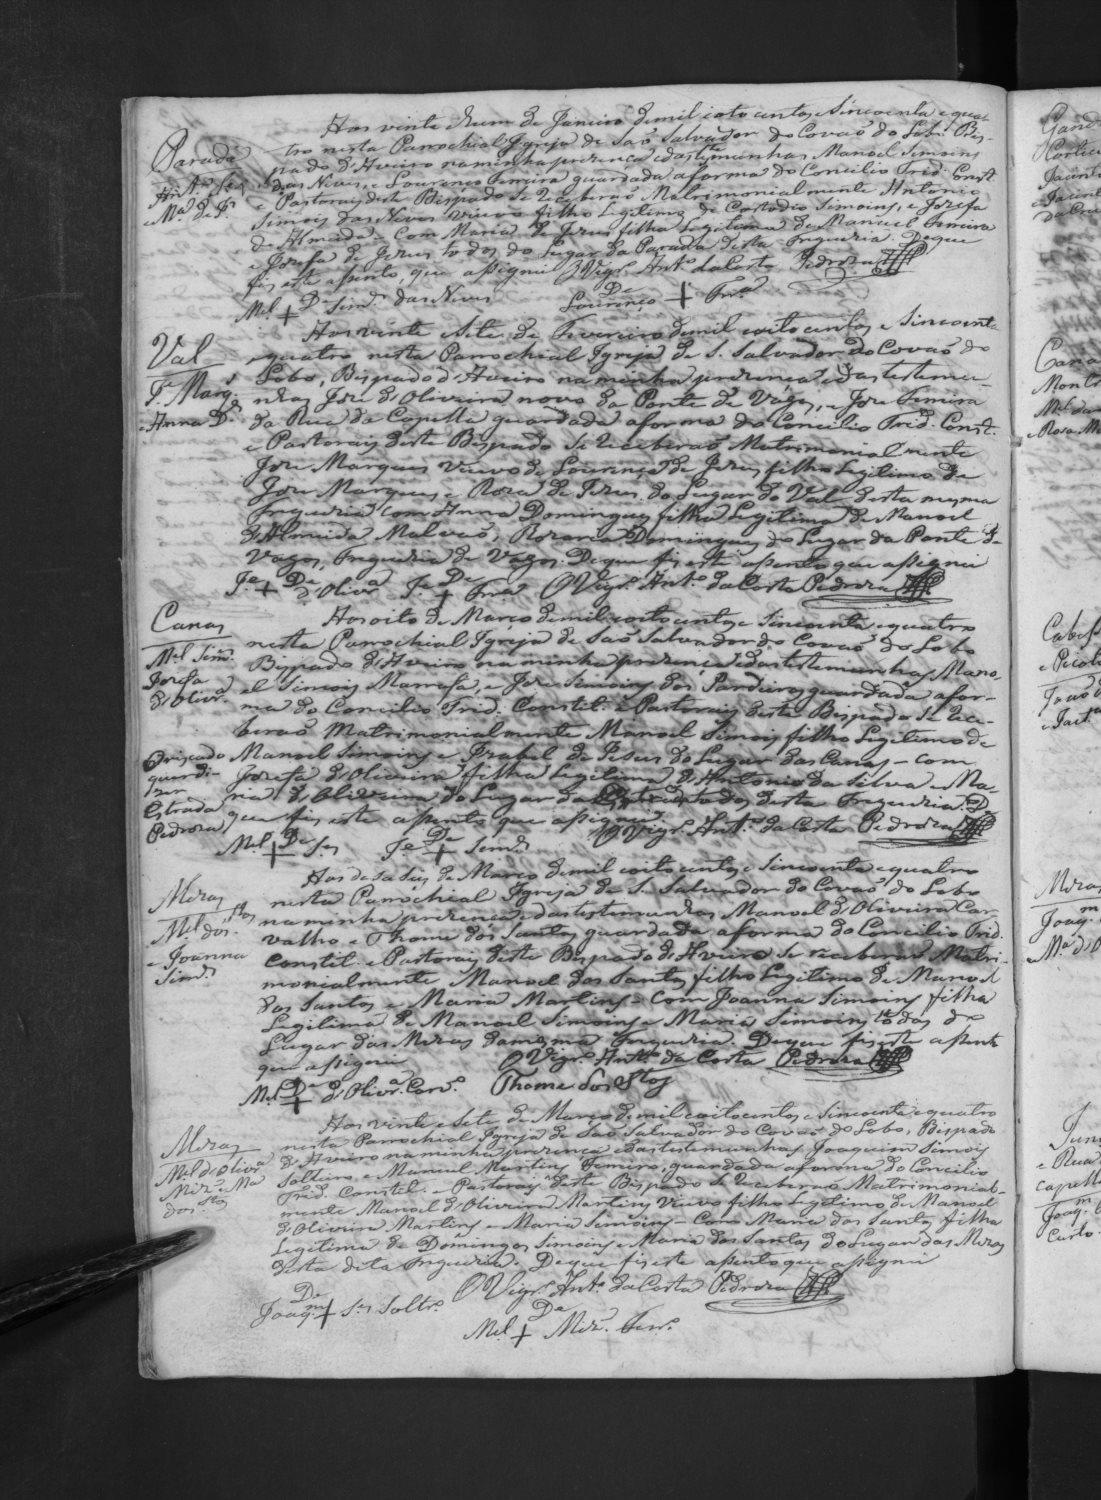 Parada
Anto. Sim.
e Ma. de Js.
Aos vinte e hum de Janeiro de mil oito centos e Sincoenta e qua-
tro nesta Parrochial Igreja de São Salvador do Covão do Lobo Bis-
pado d'Aveiro na minha prezença e das testemunhas Manoel Simois
das Neves, e Lourenço Ferreira guardada a forma do Concilio Trid. Const.
e Pastorais deste Bispado Se Receberão Matrimonialmente Antonio
Simois das Neves viuvo filho Legitimo de Custodio Simoins, e Jozefa
de Almeida - Com Maria de Jezus filha Legitima de Manuel Ferreira
e Jozefa de Jezus todos do Lugar da Parada desta Freguezia. Deque
fis este aSento, que aSignei O Vigro. Anto. da Costa Pedroza
Mel. + De Sim. das Neves De Lourenço + Frra.
Val
Je. Marqs.
e Anna Ds.
Aos vinte e Sete de Fevereiro de mil coito centos e Sincoenta
e quatro nesta Parrochial Igreja de S. Salvador do Covão do
Lobo, Bispado d'Aveiro na minha prezença e das testemu-
nhas Joze d'Oliveira novo da Ponte de Vagos, e Joze Ferreira
da Rua da Capella guardada a forma do Concilio Trid. Const.
e Pastorais deste Bispado Se Receberão Matrimonialmente
Joze Marques viuvo de Lourença de Jezus, filho Legitimo de
Joze Marques, e Roza de Jezus do Lugar do Val desta mesma
Freguezia com Anna Domingues filha Legitima de Manoel
d'Almeida Malvão, e Rozaria Domingues do Lugar da Ponte de
Vagos, Freguezia de Vagos. Deque fis este aSento que aSignei
Je. + De d'Olivra. Je. De + Frra. O Vigro. Anto. da Costa Pedroza
Canas
Mel. Sim.
Jozefa
d'Olivra.
Aos oito de Março de mil coito centos e Sincoenta e quatro
nesta Parrochial Igreja de São Salvador do Covão do Lobo
Bispado d'Aveiro na minha prezença e das testemunhas Mano-
el Simois Marrafa, e Joze Simoins dos Pardieiros guardada a for-
ma do Concilio Trid. Constit. e Pastorais deste Bispado Se Rece-
berão Matrimonialmente Manoel Simois filho Legitimo de
Manoel Simoins e Izabel de Jezus do Lugar das Canas - com
Jozefa d'Oliveira filha Legitima d'Antonio da Silva e Ma-
ria d'Oliveira do Lugar da Estrada todos desta Freguezia. De
que fis este aSento que aSignei O Vigro. Anto. da Costa Pedroza
O riscado
quer di-
zer
Estrada
Pedroza
Mel. + De Ss. Je. De + Sim.
Miras
Mel. dos Stos.
e Joanna
Sim.
Aos desaSeis de Março de mil coito centos e Sincoenta e quatro
nesta Parrochial Igreja de S. Salvador do Covão do Lobo
na minha prezença e das testemunhas Manoel d'Oliveira Car-
valho e Thome dos Santos guardada a forma do Concilio Trid.
Constit. e Pastorais deste Bispado d'Aveiro se receberão Matri-
monialmente Manoel dos Santos filho Legitimo de Manoel
dos Santos e Maria Martins - com Joanna Simoins filha
Legitima de Manoel Simoins e Maria Simoins todos do
Lugar das Miras da mesma Freguezia. Deque fis este aSento
que aSignei O Vigro. Anto. da Costa Pedroza
Mel. De + d'Olivra. Carvo. Thome dos Stos
Miras
Mel. d'Olivra.
Mizs. e Ma.
dos Stos
Aos vinte e Sete de Março de mil coito centos e Sincoenta e quatro
nesta Parrochial Igreja de São Salvador do Covão do Lobo, Bispado
d'Aveiro na minha prezença e das testemunhas Joaquim Simois
Solteiro, e Manuel Martins Ferreiro, guardada a forma do Concilio
Trid. Constit. e Pastorais deste Bispado Se Receberão Matrimonial-
mente Manoel d'Oliveira Martins Viuvo filho Legitimo de Manoel
d'Oliveira Martins e Maria Simoins - Com Maria dos Santos filha
Legitima de Domingos Simoins e Maria dos Santos do Lugar das Miras
deste dita Freguezia. Deque fis este aSento que aSignei
O Vigro. Anto. da Costa Pedroza
De Joaqm. + Ss. Soltro.
De Mel. + Mizs. Ferr.